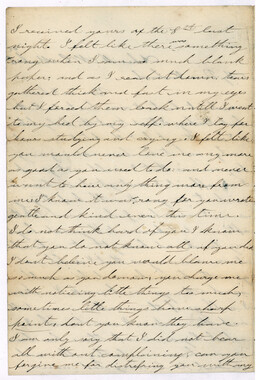 I received yours of the 8th last
night. I felt like there was something
rong when I saw so much blank
paper; and as I read it down, tears
gathered thick and fast in my eyes
but I forced them back untill I went
to my bed by my self where I lay for
hours studying and crying. I felt like
you would never love me any more
as good as you used to do and never
want to have any thing more from
me. I know it was rong for you wrote
gentle and kind even this time.
I do not think hard of you I know
that you do not know all if you did
I dont believe you would blame me
so much as you do main, you charge me
with noticeing little things too much,
some times little things have sharp
points, dont you know they have
I am only sorry that I did not bear
all with out complaining, can you
forgive me for distressing you with my